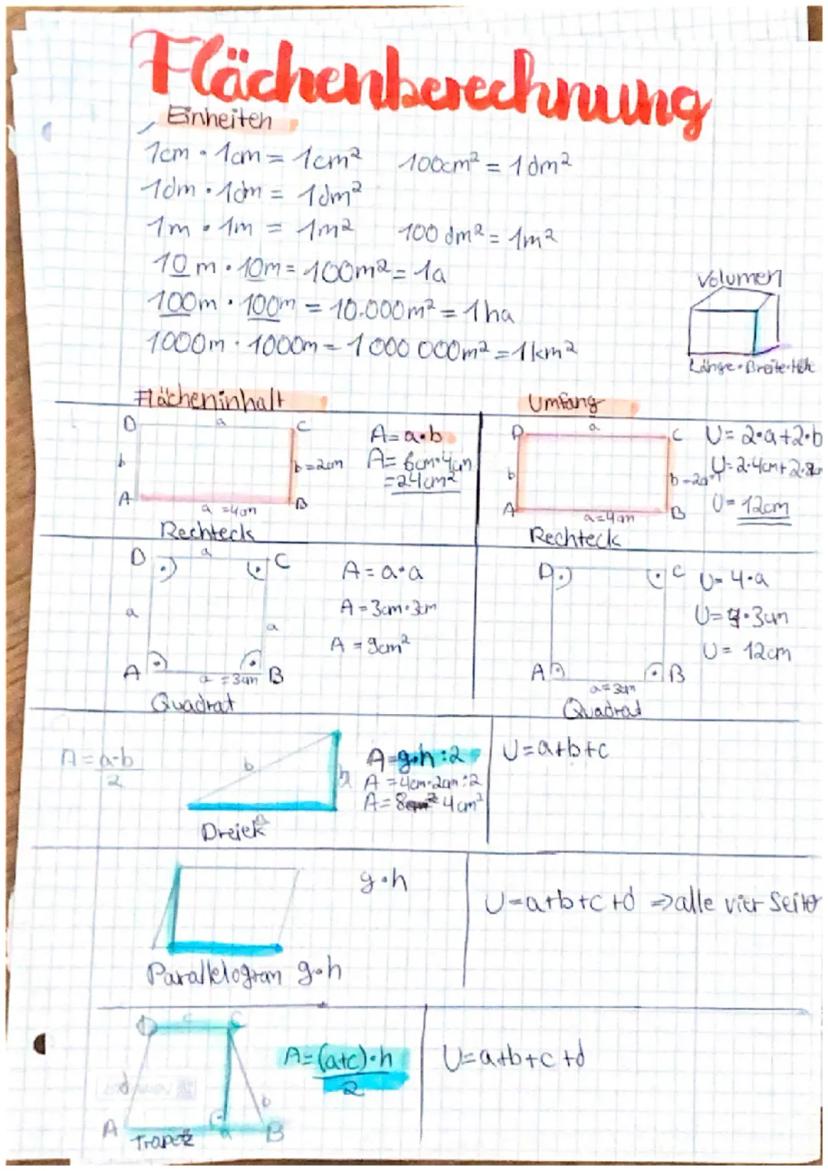 Flächenberechnung
Einheiten
1cm · 1cm = 1cm² 100cm² = 1dm²
1dm · 1dm = 1dm²
1m · 1m = 1m² 100 dm² = 1m²
10 m · 10m = 100m² = 1a
100m · 100m = 10.000m² = 1ha
1000m · 1000m = 1000 000m² = 1km²
Volumen
Länge · Breite · Höh
Flächeninhalt
D a C
b b=2cm
A a=4cm B
Rechteck
A= a·b
A= 6cm·4cm
=24cm²
Umfang
D a C
b b=2cm
A a=4cm B
Rechteck
U= 2·a+2·b
U=2·4cm+2·2cm
U= 12cm
D a C
a a
A a=3cm B
Quadrat
A=a·a
A=3cm·3cm
A = 9cm²
D C
A B
a=3cm
Quadrat
U= 4·a
U=4·3cm
U= 12cm
A=a·b
2
b h
Dreiek
A=g·h:2
A=4cm·2cm:2
A=8cm² 4cm²
U=a+b+c
g·h
Parallelogram g·h
U=a+b+c+d ⇒alle vier Seite
D c C
d b
A a B
Trapez
A=(a+c)·h
2
U=a+b+c+d